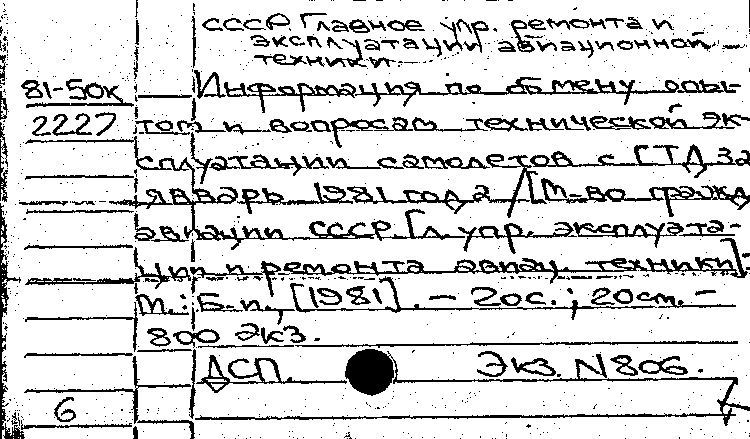 СССР. Главное упр. ремонта и
эксплуатации авиационной
техники.
81-50к Информация по обмену опы-
2227 том и вопросам технической эк-
сплуатации самолетов с ГТД за
январь 1981 года / [М-во гражд.
авиации СССР. Гл. упр. эксплуата-
ции и ремонта авиац. техники].-
М.: Б.и., [1981]. - 20с.; 20см. -
800 экз.
ДСП. Экз. N 806.
6